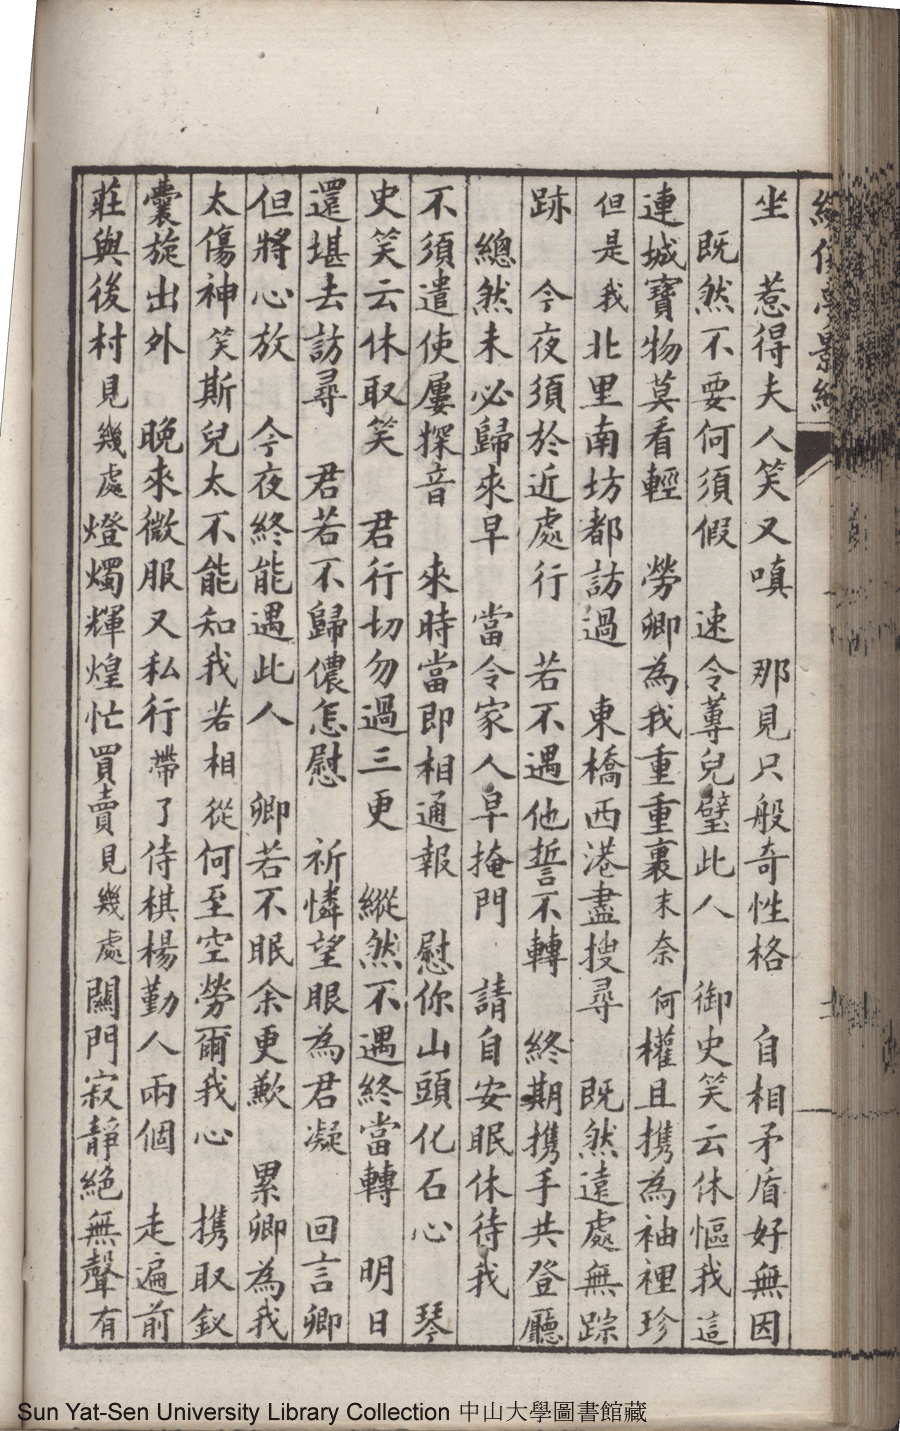 坐　惹得夫人笑又嗔　那見只般奇性格　自相矛盾好無因
既然不要何須假　速令蓴兒璧此人　御史笑云休慪我這
連城寶物莫看輕　勞卿為我重重裹末奈何權且携為袖裡珍
但是我北里南坊都訪過　東橋西港盡搜尋　既然遠處無踪
跡　今夜須於近處行　若不遇他誓不轉　終期携手共登廳
總然未必歸來早　當令家人早掩門　請自安眠休待我
不須遣使屢探音　來時當即相通報　慰你山頭化石心　琴
史笑云休取笑　君行切勿過三更　縱然不遇終當轉　明日
還堪去訪尋　君若不歸儂怎慰　祈憐望眼為君凝　回言卿
但將心放　今夜終能遇此人　卿若不眠余更歉　累卿為我
太傷神笑斯兒太不能知我若相從何至空勞爾我心　携取釵
囊旋出外　晚來微服又私行帶了侍棋楊勤人兩個　走遍前
莊與後村見幾處燈燭輝煌忙買賣見幾處關門寂靜絕無聲有
Sun Yat-Sen University Library Collection 中山大學圖書館藏